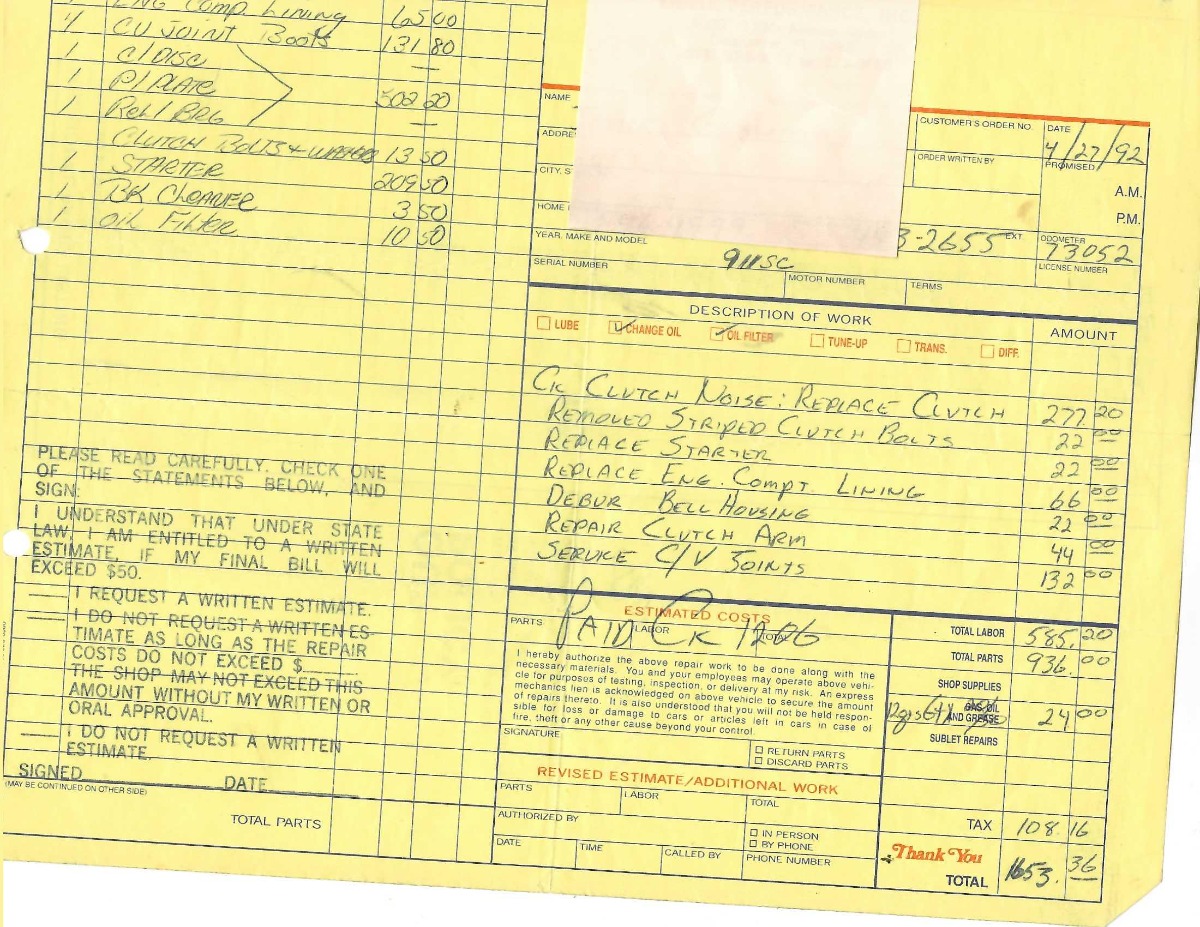 ENG Comp. Lining 65 00
4 CV JOINT Boots 131 80
1 C/DISC —
1 P/PLATE 502 20
1 Rel/BRG —
CLUTCH BOLTS + WASHERS 13 50
1 STARTER 209 50
1 BK CLEANER 3 50
1 OIL FILTER 10 50
PLEASE READ CAREFULLY. CHECK ONE
OF THE STATEMENTS BELOW, AND
SIGN:
I UNDERSTAND THAT UNDER STATE
LAW, I AM ENTITLED TO A WRITTEN
ESTIMATE, IF MY FINAL BILL WILL
EXCEED $50.
I REQUEST A WRITTEN ESTIMATE.
I DO NOT REQUEST A WRITTEN ES-
TIMATE AS LONG AS THE REPAIR
COSTS DO NOT EXCEED $
THE SHOP MAY NOT EXCEED THIS
AMOUNT WITHOUT MY WRITTEN OR
ORAL APPROVAL.
I DO NOT REQUEST A WRITTEN
ESTIMATE.
SIGNED DATE
(MAY BE CONTINUED ON OTHER SIDE)
TOTAL PARTS
NAME
ADDRE
CITY, S
HOME
CUSTOMER'S ORDER NO.
DATE
4/27/92
ORDER WRITTEN BY
PROMISED
A.M.
P.M.
3-2655 EXT.
ODOMETER
73052
YEAR, MAKE AND MODEL
911SC
LICENSE NUMBER
SERIAL NUMBER
MOTOR NUMBER
TERMS
DESCRIPTION OF WORK AMOUNT
LUBE CHANGE OIL OIL FILTER TUNE-UP TRANS. DIFF.
CK CLUTCH NOISE: REPLACE CLUTCH 277. 20
REMOVED STRIPED CLUTCH BOLTS 22 00
REPLACE STARTER 22 00
REPLACE ENG. COMPT. LINING 66 00
DEBUR BELL HOUSING 22 00
REPAIR CLUTCH ARM 44 00
SERVICE C/V JOINTS 132 00
ESTIMATED COSTS
PARTS LABOR TOTAL
PAID CK 1206
I hereby authorize the above repair work to be done along with the
necessary materials. You and your employees may operate above vehi-
cle for purposes of testing, inspection, or delivery at my risk. An express
mechanics lien is acknowledged on above vehicle to secure the amount
of repairs thereto. It is also understood that you will not be held respon-
sible for loss or damage to cars or articles left in cars in case of
fire, theft or any other cause beyond your control.
SIGNATURE
RETURN PARTS
DISCARD PARTS
REVISED ESTIMATE/ADDITIONAL WORK
PARTS LABOR TOTAL
AUTHORIZED BY
IN PERSON
BY PHONE
DATE TIME CALLED BY PHONE NUMBER
TOTAL LABOR 585. 20
TOTAL PARTS 936. 00
SHOP SUPPLIES
GAS, OIL
AND GREASE 24 00
SUBLET REPAIRS
TAX 108. 16
Thank You
TOTAL 1653. 36